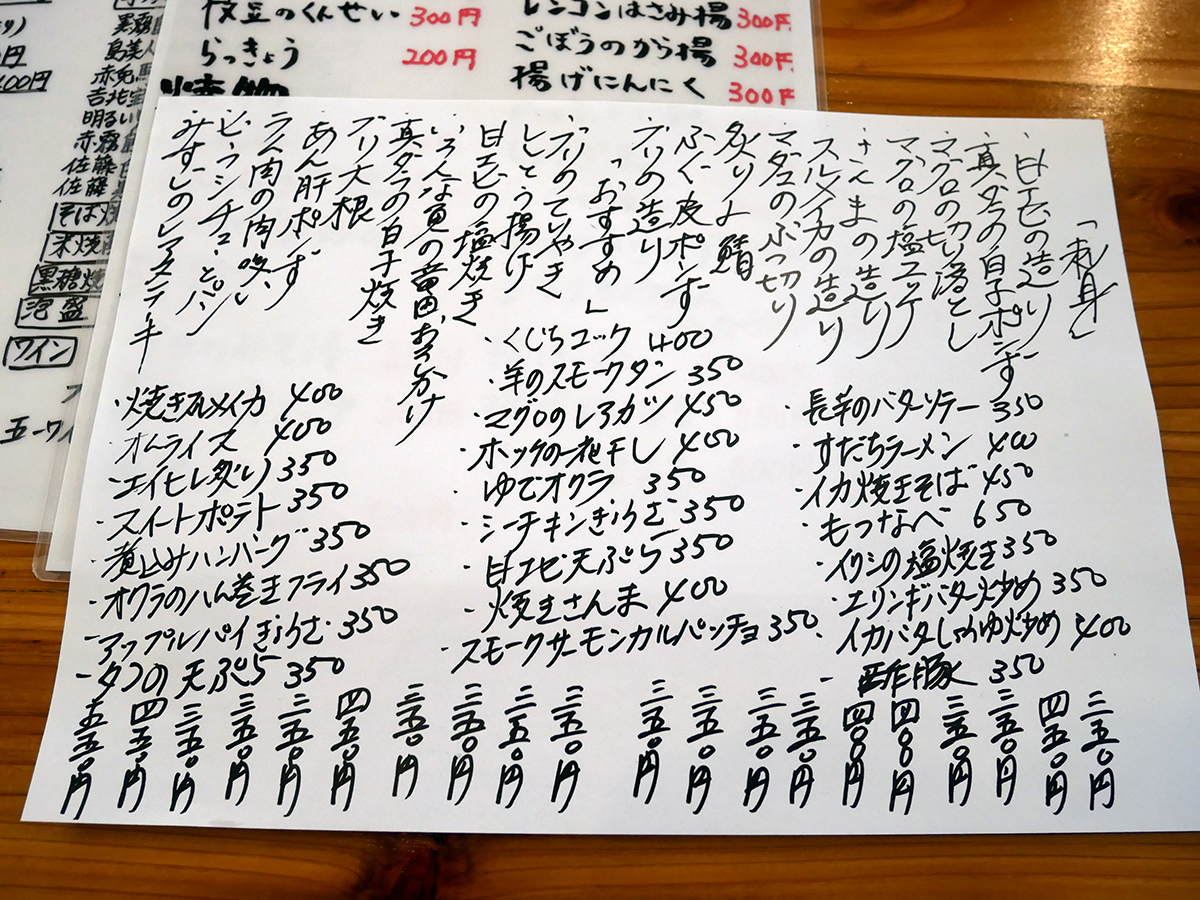 枝豆のくんせい 300円
らっきょう 200円
レンコンはさみ揚 300円
ごぼうのから揚 300円
揚げにんにく 300円
黒霧
島美人
赤兎馬
吉北宝
明るい
赤霧
佐藤
佐藤
そば焼
米焼
黒糖焼
泡盛
ワイン
「刺身」
・甘エビの造り 三五〇円
・真ダラの白子ポンず 四五〇円
・マグロの切り落とし 三五〇円
・マグロの塩ユッケ 三五〇円
・さんまの造り 四〇〇円
・スルメイカの造り 四〇〇円
・マダコのぶつ切り 三五〇円
・炙りよ鯖 三五〇円
・ふぐ皮ポンず 三五〇円
・ブリの造り 三五〇円
「おすすめ」
・ブリのてりやき 三五〇円
・ししとう揚げ 三五〇円
・甘エビの塩焼き 三五〇円
・いろんな魚の竜田おろしかけ 三五〇円
・真ダラの白子焼き 四五〇円
・ブリ大根 三五〇円
・あん肝ポンず 三五〇円
・ラム肉の肉吸い 三五〇円
・ビーフシチューとパン 四五〇円
・みすじのレアステーキ 五五〇円
・焼きスルメイカ 400
・オムライス 400
・エイヒレ炙り 350
・スイートポテト 350
・煮込みハンバーグ 350
・オクラのハム巻きフライ 350
・アップルパイぎょうざ 350
・タコの天ぷら 350
・くじらユッケ 400
・羊のスモークタン 350
・マグロのレアカツ 450
・ホッケの一夜干し 400
・ゆでオクラ 350
・シーチキンぎょうざ 350
・甘エビ天ぷら 350
・焼きさんま 400
・スモークサーモンカルパッチョ 350
・長芋のバターソテー 350
・すだちラーメン 400
・イカ焼きそば 450
・もつなべ 650
・イワシの塩焼き 350
・エリンギバター炒め 350
・イカバタしょうゆ炒め 400
・酢豚 350